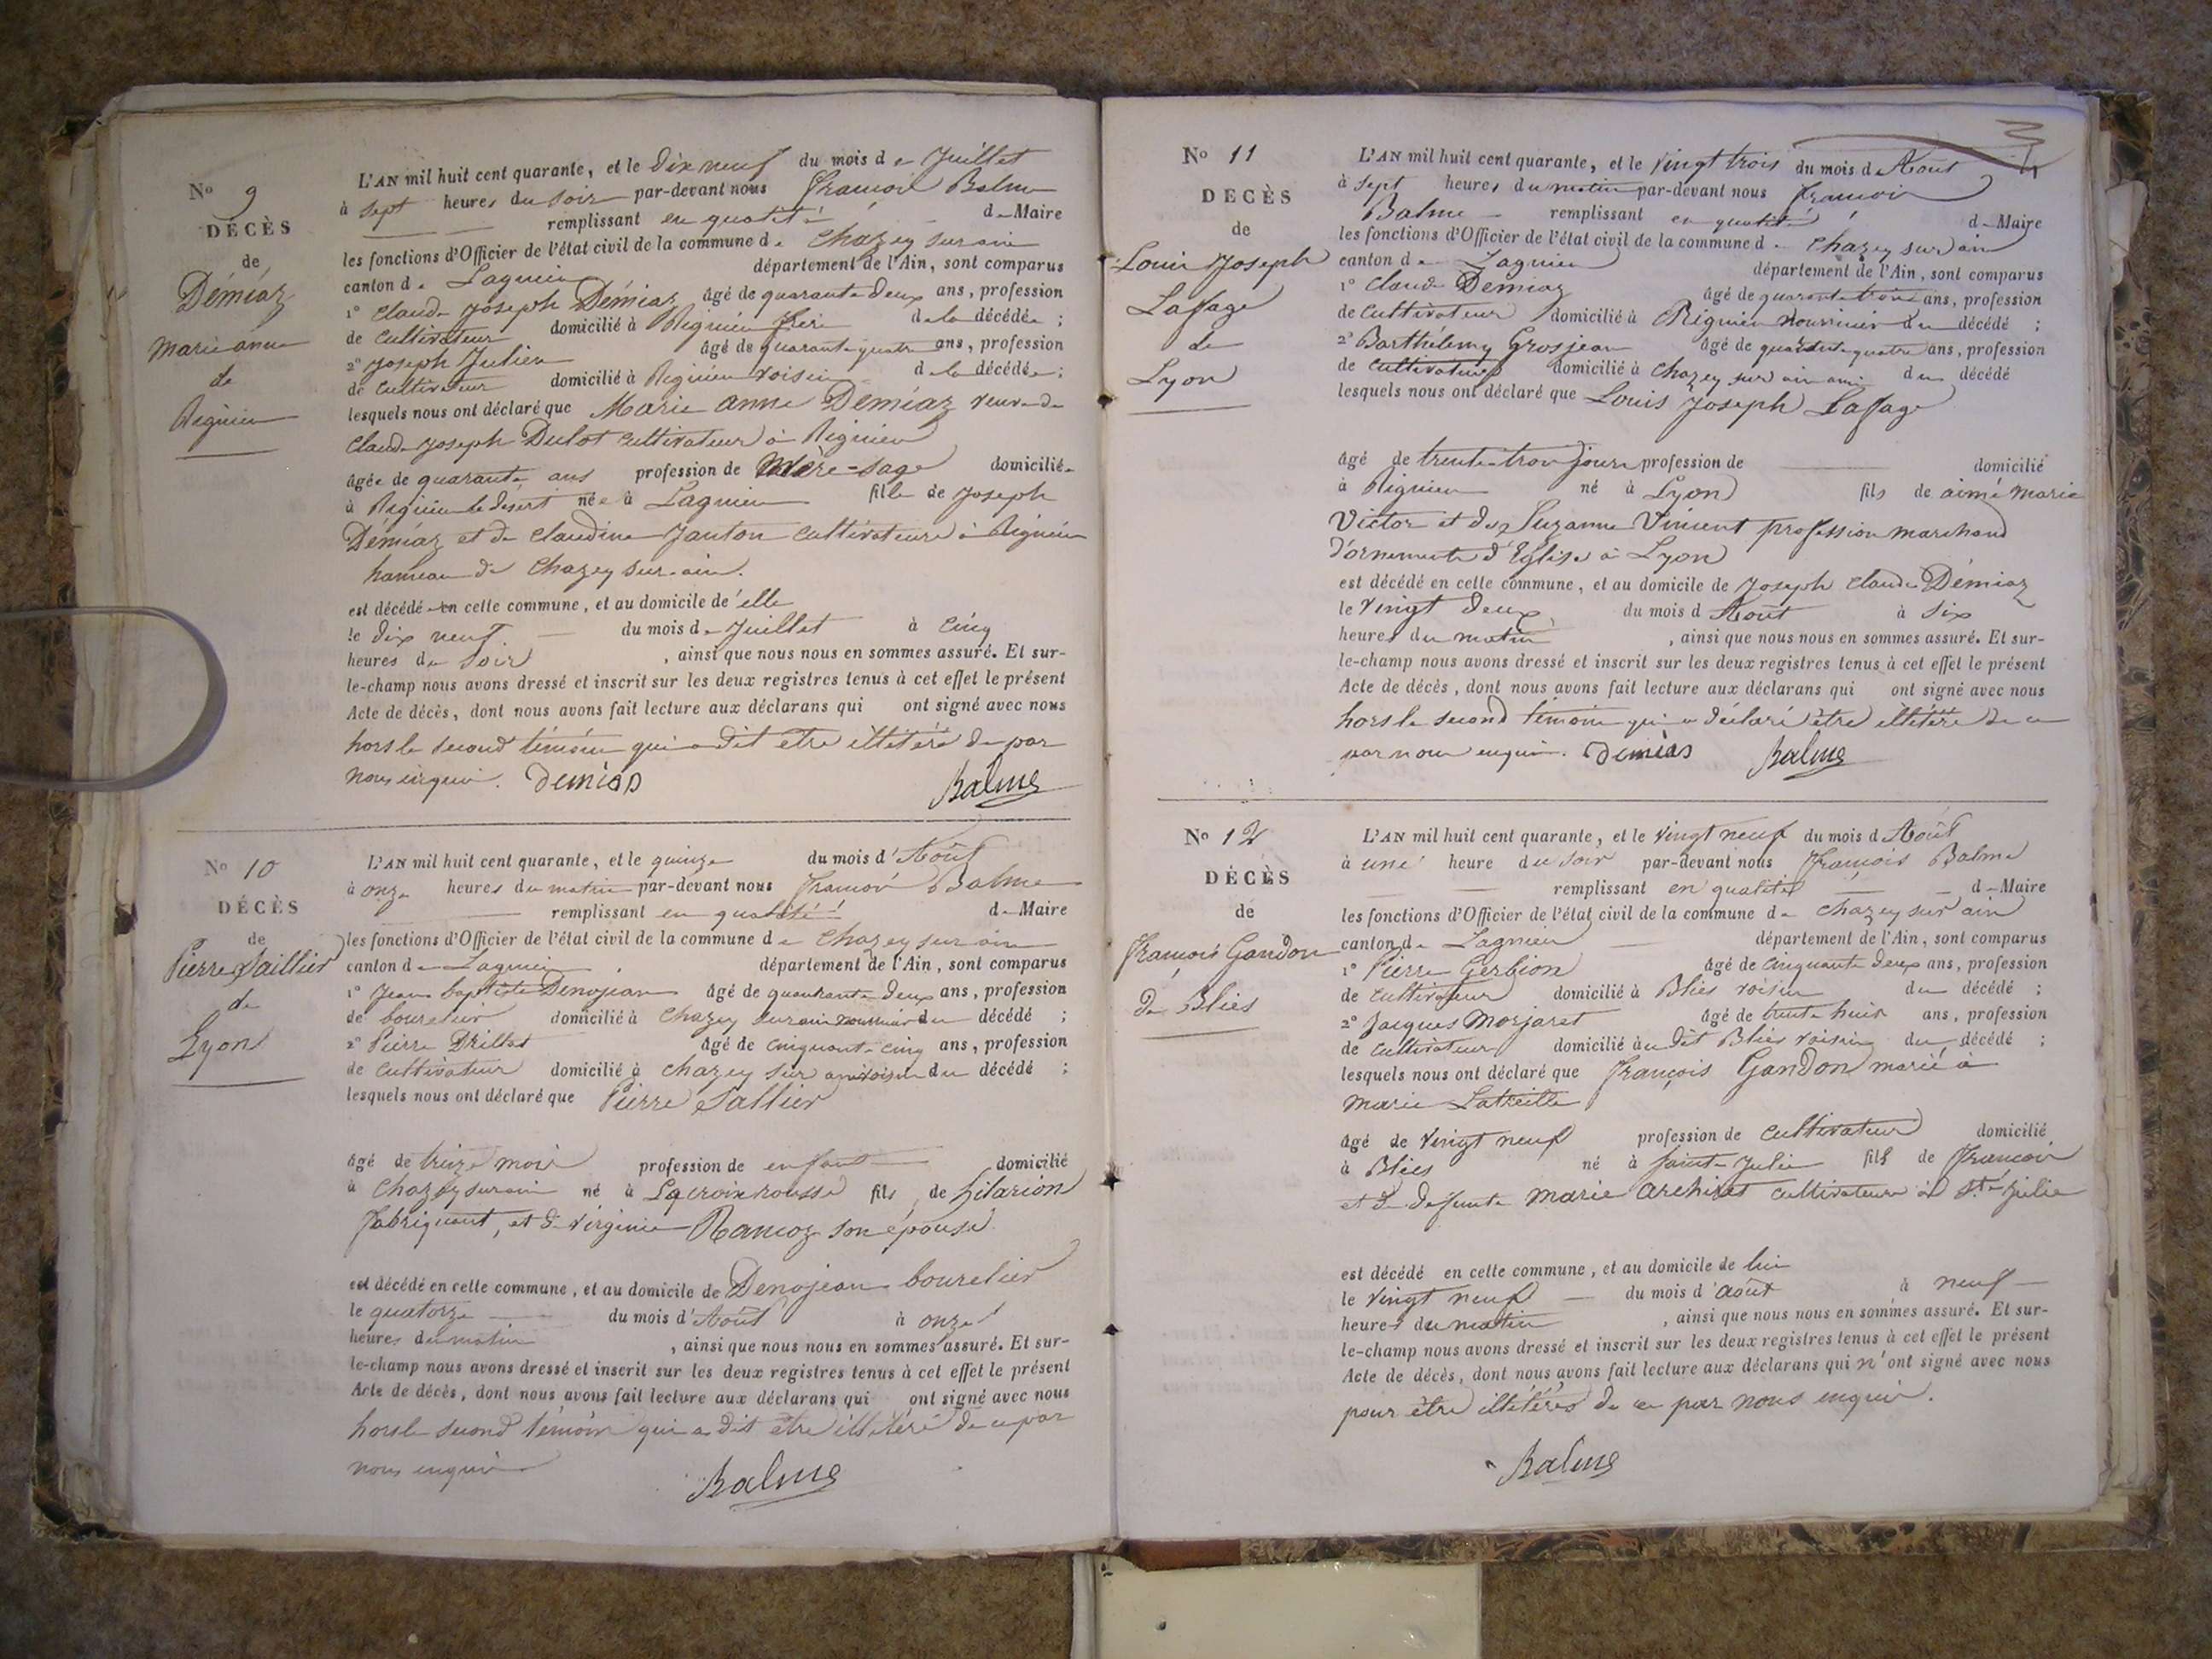 N° 9
DÉCÈS
de
Démiaz
Marie anne
de
Rignieu
L'AN mil huit cent quarante, et le dix neuf du mois de Juillet
à sept heures du soir par-devant nous François Balme
remplissant en qualité de Maire
les fonctions d'Officier de l'état civil de la commune de Chazey sur ain
canton de Lagnieu département de l'Ain, sont comparus
1° Claude Joseph Démiaz âgé de quarante deux ans, profession
de cultivateur domicilié à Rignieu frère de la décédée ;
2° Joseph Julien âgé de quarante quatre ans, profession
de cultivateur domicilié à Rignieu voisin de la décédée ;
lesquels nous ont déclaré que Marie anne Démiaz veuve de
Claude Joseph Dulot cultivateur à Rignieu
âgée de quarante ans profession de Mère-sage domiciliée
à Rignieu le désert née à Lagnieu fille de Joseph
Démiaz et de Claudine Janton cultivateurs à Rignieu
hameau de Chazey sur-ain.
est décédée en cette commune, et au domicile de elle
le dix neuf du mois de Juillet à cinq
heures du soir , ainsi que nous nous en sommes assuré. Et sur-
le-champ nous avons dressé et inscrit sur les deux registres tenus à cet effet le présent
Acte de décès, dont nous avons fait lecture aux déclarans qui ont signé avec nous
hors le second témoin qui a dit être illétéré de par
nous enquis. Demias Balme
N° 10
DÉCÈS
de
Pierre Saillier
de
Lyon
L'AN mil huit cent quarante, et le quinze du mois d'Août
à onze heures du matin par-devant nous François Balme
remplissant en qualité de Maire
les fonctions d'Officier de l'état civil de la commune de Chazey sur ain
canton de Lagnieu département de l'Ain, sont comparus
1° Jean baptiste Denojean âgé de quarante deux ans, profession
de bourelier domicilié à Chazey sur ain nourricier du décédé ;
2° Pierre Drillet âgé de cinquante cinq ans, profession
de cultivateur domicilié à Chazey sur ain voisin du décédé ;
lesquels nous ont déclaré que Pierre Sallier
âgé de treize mois profession de enfant domicilié
à Chazey sur ain né à Lacroix rousse fils de hilarion
fabriquant, et de virginie Ramoz son épouse
est décédé en cette commune, et au domicile de Denojean bourelier
le quatorze du mois d'Août à onze
heures du matin , ainsi que nous nous en sommes assuré. Et sur-
le-champ nous avons dressé et inscrit sur les deux registres tenus à cet effet le présent
Acte de décès, dont nous avons fait lecture aux déclarans qui ont signé avec nous
hors le second témoin qui a dit être illétéré de ce par
nous enquis
Balme
N° 11
DÉCÈS
de
Louis Joseph
Lafage
de
Lyon
L'AN mil huit cent quarante, et le vingt trois du mois d'Août
à sept heures du matin par-devant nous François
Balme remplissant en qualité de Maire
les fonctions d'Officier de l'état civil de la commune de Chazey sur ain
canton de Lagnieu département de l'Ain, sont comparus
1° Claude Demiaz âgé de quarante trois ans, profession
de cultivateur domicilié à Rignieu nourricier du décédé ;
2° Barthélemy Grosjean âgé de quarante quatre ans, profession
de cultivateur domicilié à Chazey sur ain ami du décédé
lesquels nous ont déclaré que Louis Joseph Lafage
âgé de trente trois jours profession de domicilié
à Rignieu né à Lyon fils de aimé marie
Victor et de Suzanne Vincent profession marchand
d'ornements d'Eglise à Lyon
est décédé en cette commune, et au domicile de Joseph Claude Démiaz
le vingt deux du mois d'Août à six
heures du matin , ainsi que nous nous en sommes assuré. Et sur-
le-champ nous avons dressé et inscrit sur les deux registres tenus à cet effet le présent
Acte de décès, dont nous avons fait lecture aux déclarans qui ont signé avec nous
hors le second témoin qui a déclaré être illétéré de ce
par nous enquis. Demias Balme
N° 12
DÉCÈS
de
françois Gandon
de Blies
L'AN mil huit cent quarante, et le vingt neuf du mois d'Août
à une heure du soir par-devant nous François Balme
remplissant en qualité de Maire
les fonctions d'Officier de l'état civil de la commune de Chazey sur ain
canton de Lagnieu département de l'Ain, sont comparus
1° Pierre Gerbion âgé de cinquante deux ans, profession
de cultivateur domicilié à Blies voisin du décédé ;
2° Jacques Morjaret âgé de trente huit ans, profession
de cultivateur domicilié au dit Blies voisin du décédé ;
lesquels nous ont déclaré que François Gandon marié à
Marie Latreille
âgé de vingt neuf profession de cultivateur domicilié
à Blies né à Sainte Julie fils de François
et de defunte Marie Archiret cultivateurs à Ste Julie
est décédé en cette commune, et au domicile de lui
le vingt neuf du mois d'août à neuf
heures du matin , ainsi que nous nous en sommes assuré. Et sur-
le-champ nous avons dressé et inscrit sur les deux registres tenus à cet effet le présent
Acte de décès, dont nous avons fait lecture aux déclarans qui n'ont signé avec nous
pour être illétérés de ce par nous enquis.
Balme